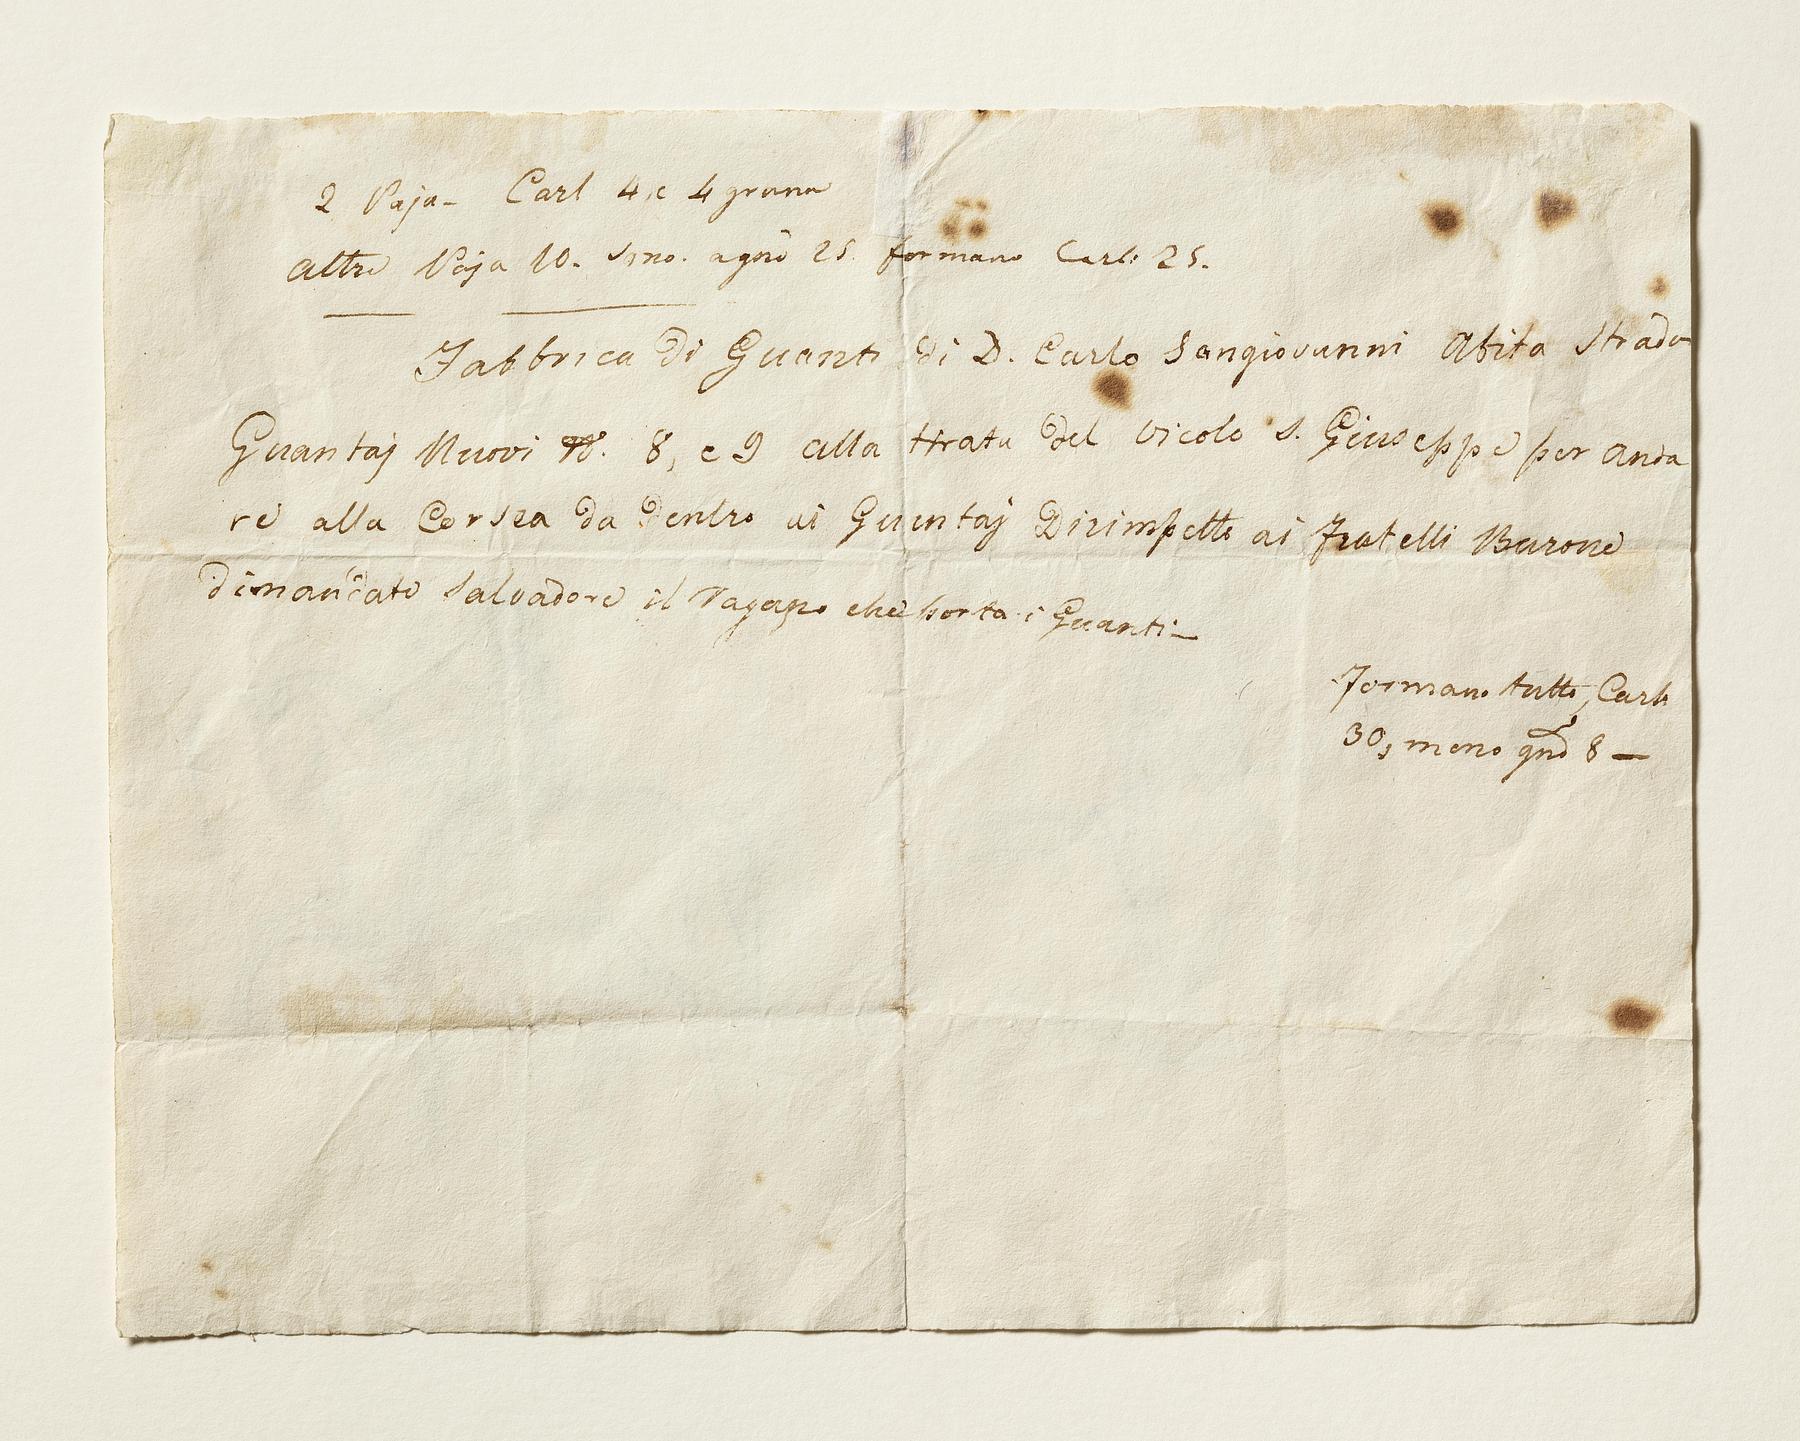 2 Paja - Carl 4, e 4 grana
altre Paja 10. sono. a gnõ 25 formano Carl: 25.
Fabbrica di Guanti di D. Carlo Sangiovanni Abita Strada
Guantaj Nuovi N. 8, e 9 alla ttrata del vicolo S. Giuseppe per anda
re alla Corsea da dentro ai Guantaj Dirimpetto ai Fratelli Barone
dimandate Salvadore il Ragazzo che porta i Guanti —
Formano tutto, Carl:
30, meno gnõ 8 —